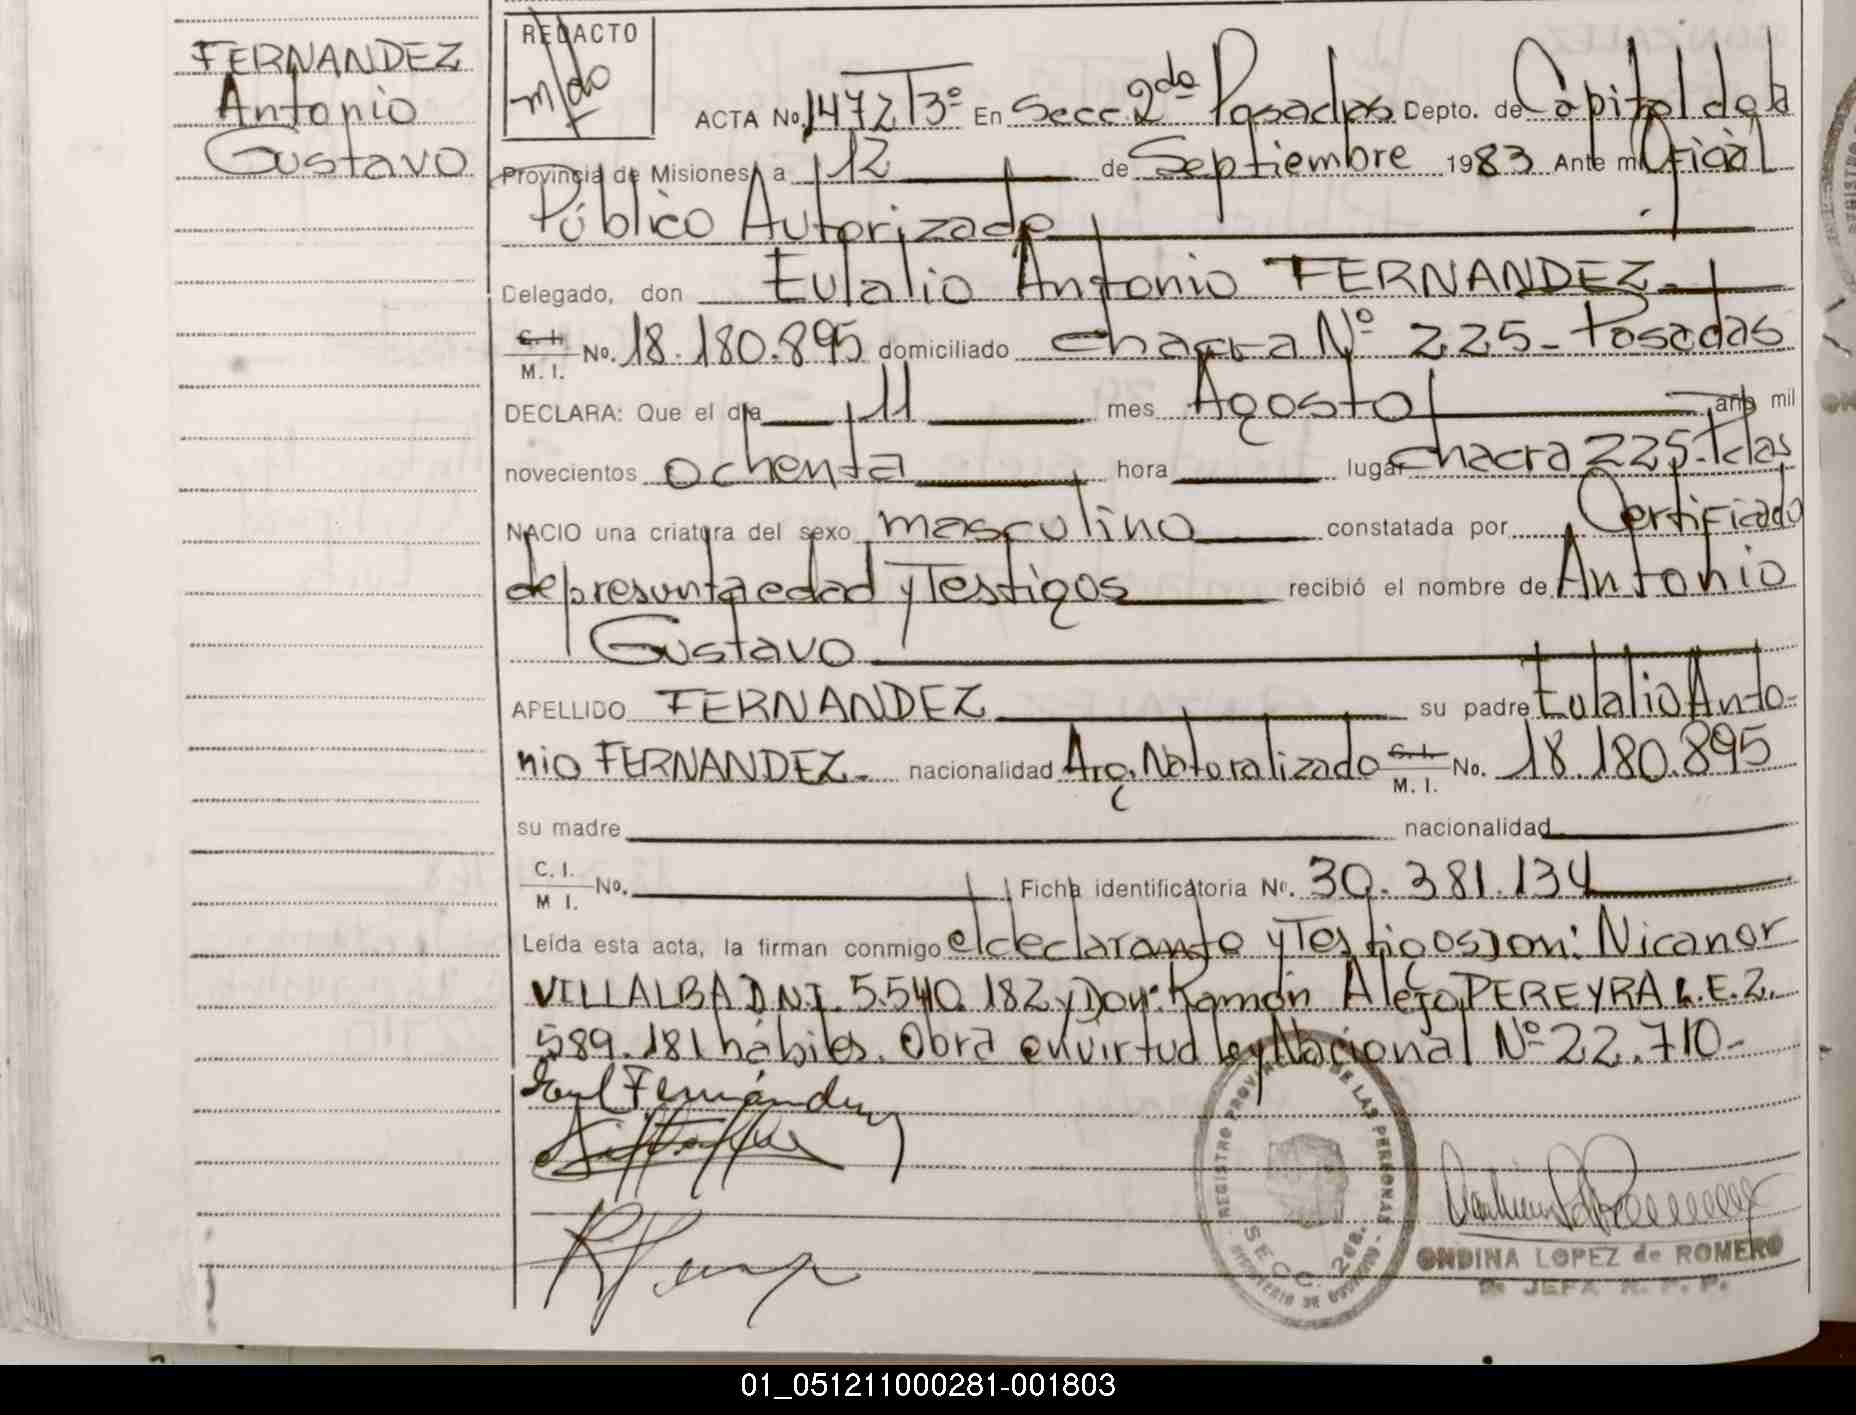 FERNANDEZ
Antonio
Gustavo
REDACTO
m/do
ACTA No. 1472 T3º En Secc 2da Posadas Depto. de Capital de la
Provincia de Misiones, a 12 de Septiembre 1983 Ante mi Oficial
Público Autorizado
Delegado, don Eulalio Antonio FERNANDEZ.
C. I.
M. I. No. 18.180.895 domiciliado chacra Nº 225- Posadas
DECLARA: Que el día 11 mes Agosto año mil
novecientos ochenta hora lugar chacra 225-Pdas
NACIO una criatura del sexo masculino constatada por Certificado
de presunta edad y Testigos recibió el nombre de Antonio
Gustavo
APELLIDO FERNANDEZ su padre Eulalio Anto-
nio FERNANDEZ. nacionalidad Arg. Naturalizado C. I. M. I. No. 18.180.895
su madre nacionalidad
C. I.
M I. No. Ficha identificatoria No. 30.381.134
Leída esta acta, la firman conmigo el declarante y Testigos Don: Nicanor
VILLALBA D.N.I. 5.540.182 y Don: Ramón Alejo PEREYRA L.E. 2.
589.181 hábiles. Obra en virtud Ley Nacional Nº 22.710-
Fernandez
REGISTRO PROVINCIAL DE LAS PERSONAS
SECC. 2da.
MINISTERIO DE GOBIERNO
ONDINA LOPEZ de ROMERO
2a. JEFA R. P. P.
01_051211000281-001803